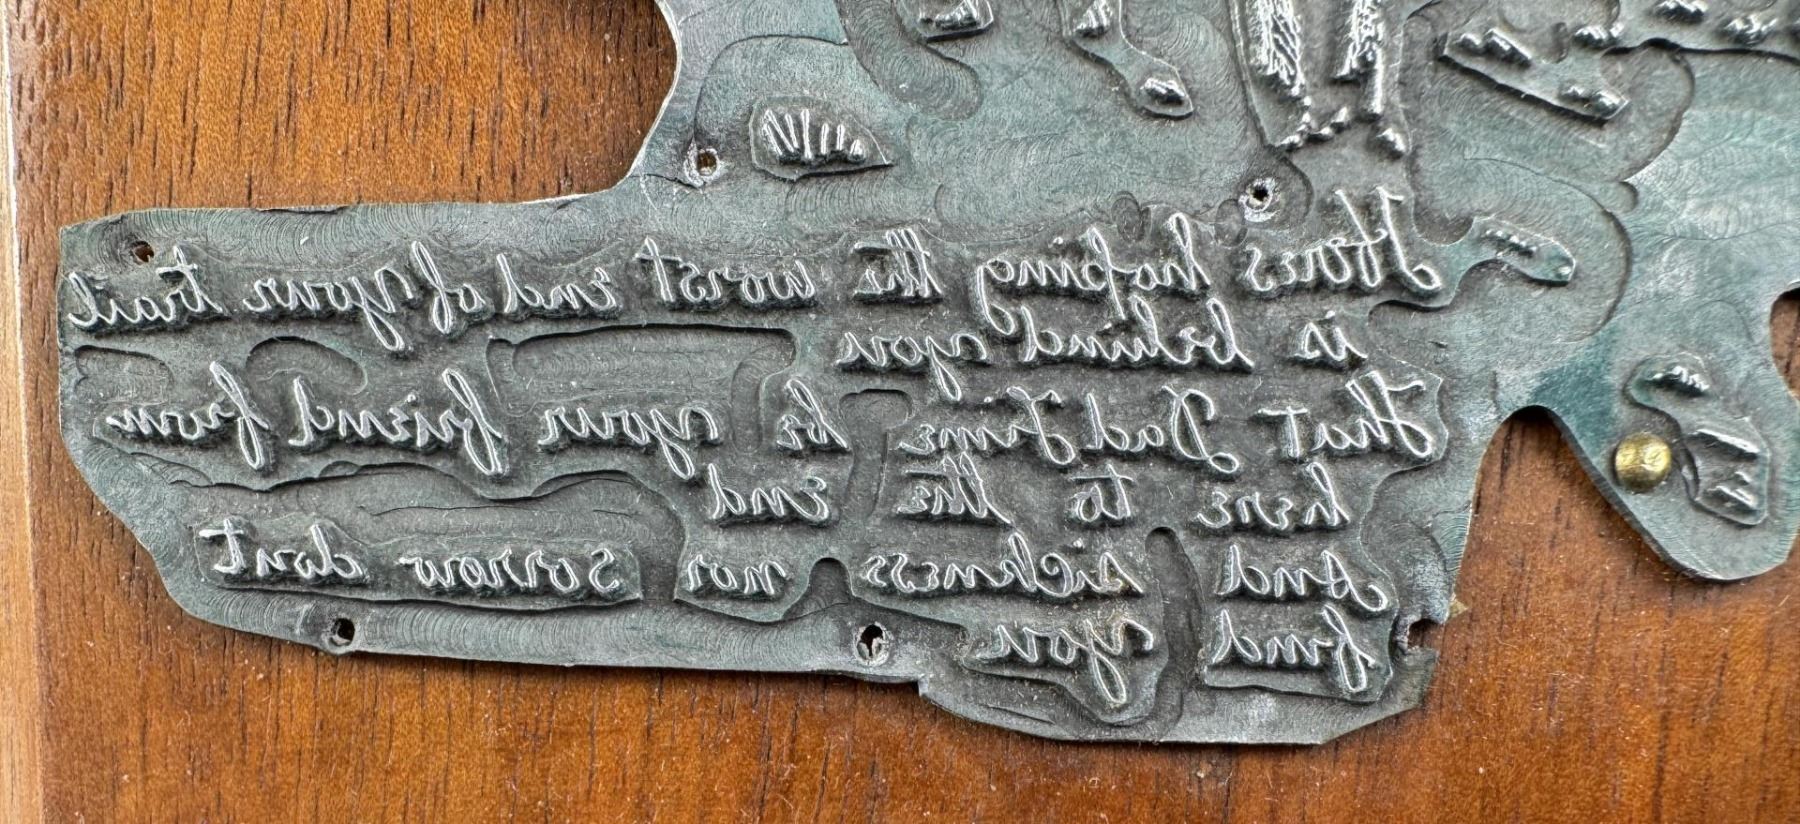 Heres hoping the worst end of your trail
is behind you
That Dad Time be your friend from
here to the end
And sickness nor sorrow dont
find you